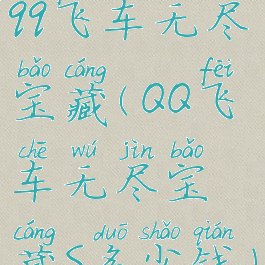 99飞车无尽
bǎo cáng fēi
宝藏(QQ飞
chē wú jìn bǎo
车无尽宝
cáng duō shǎo qián
藏S多少钱)